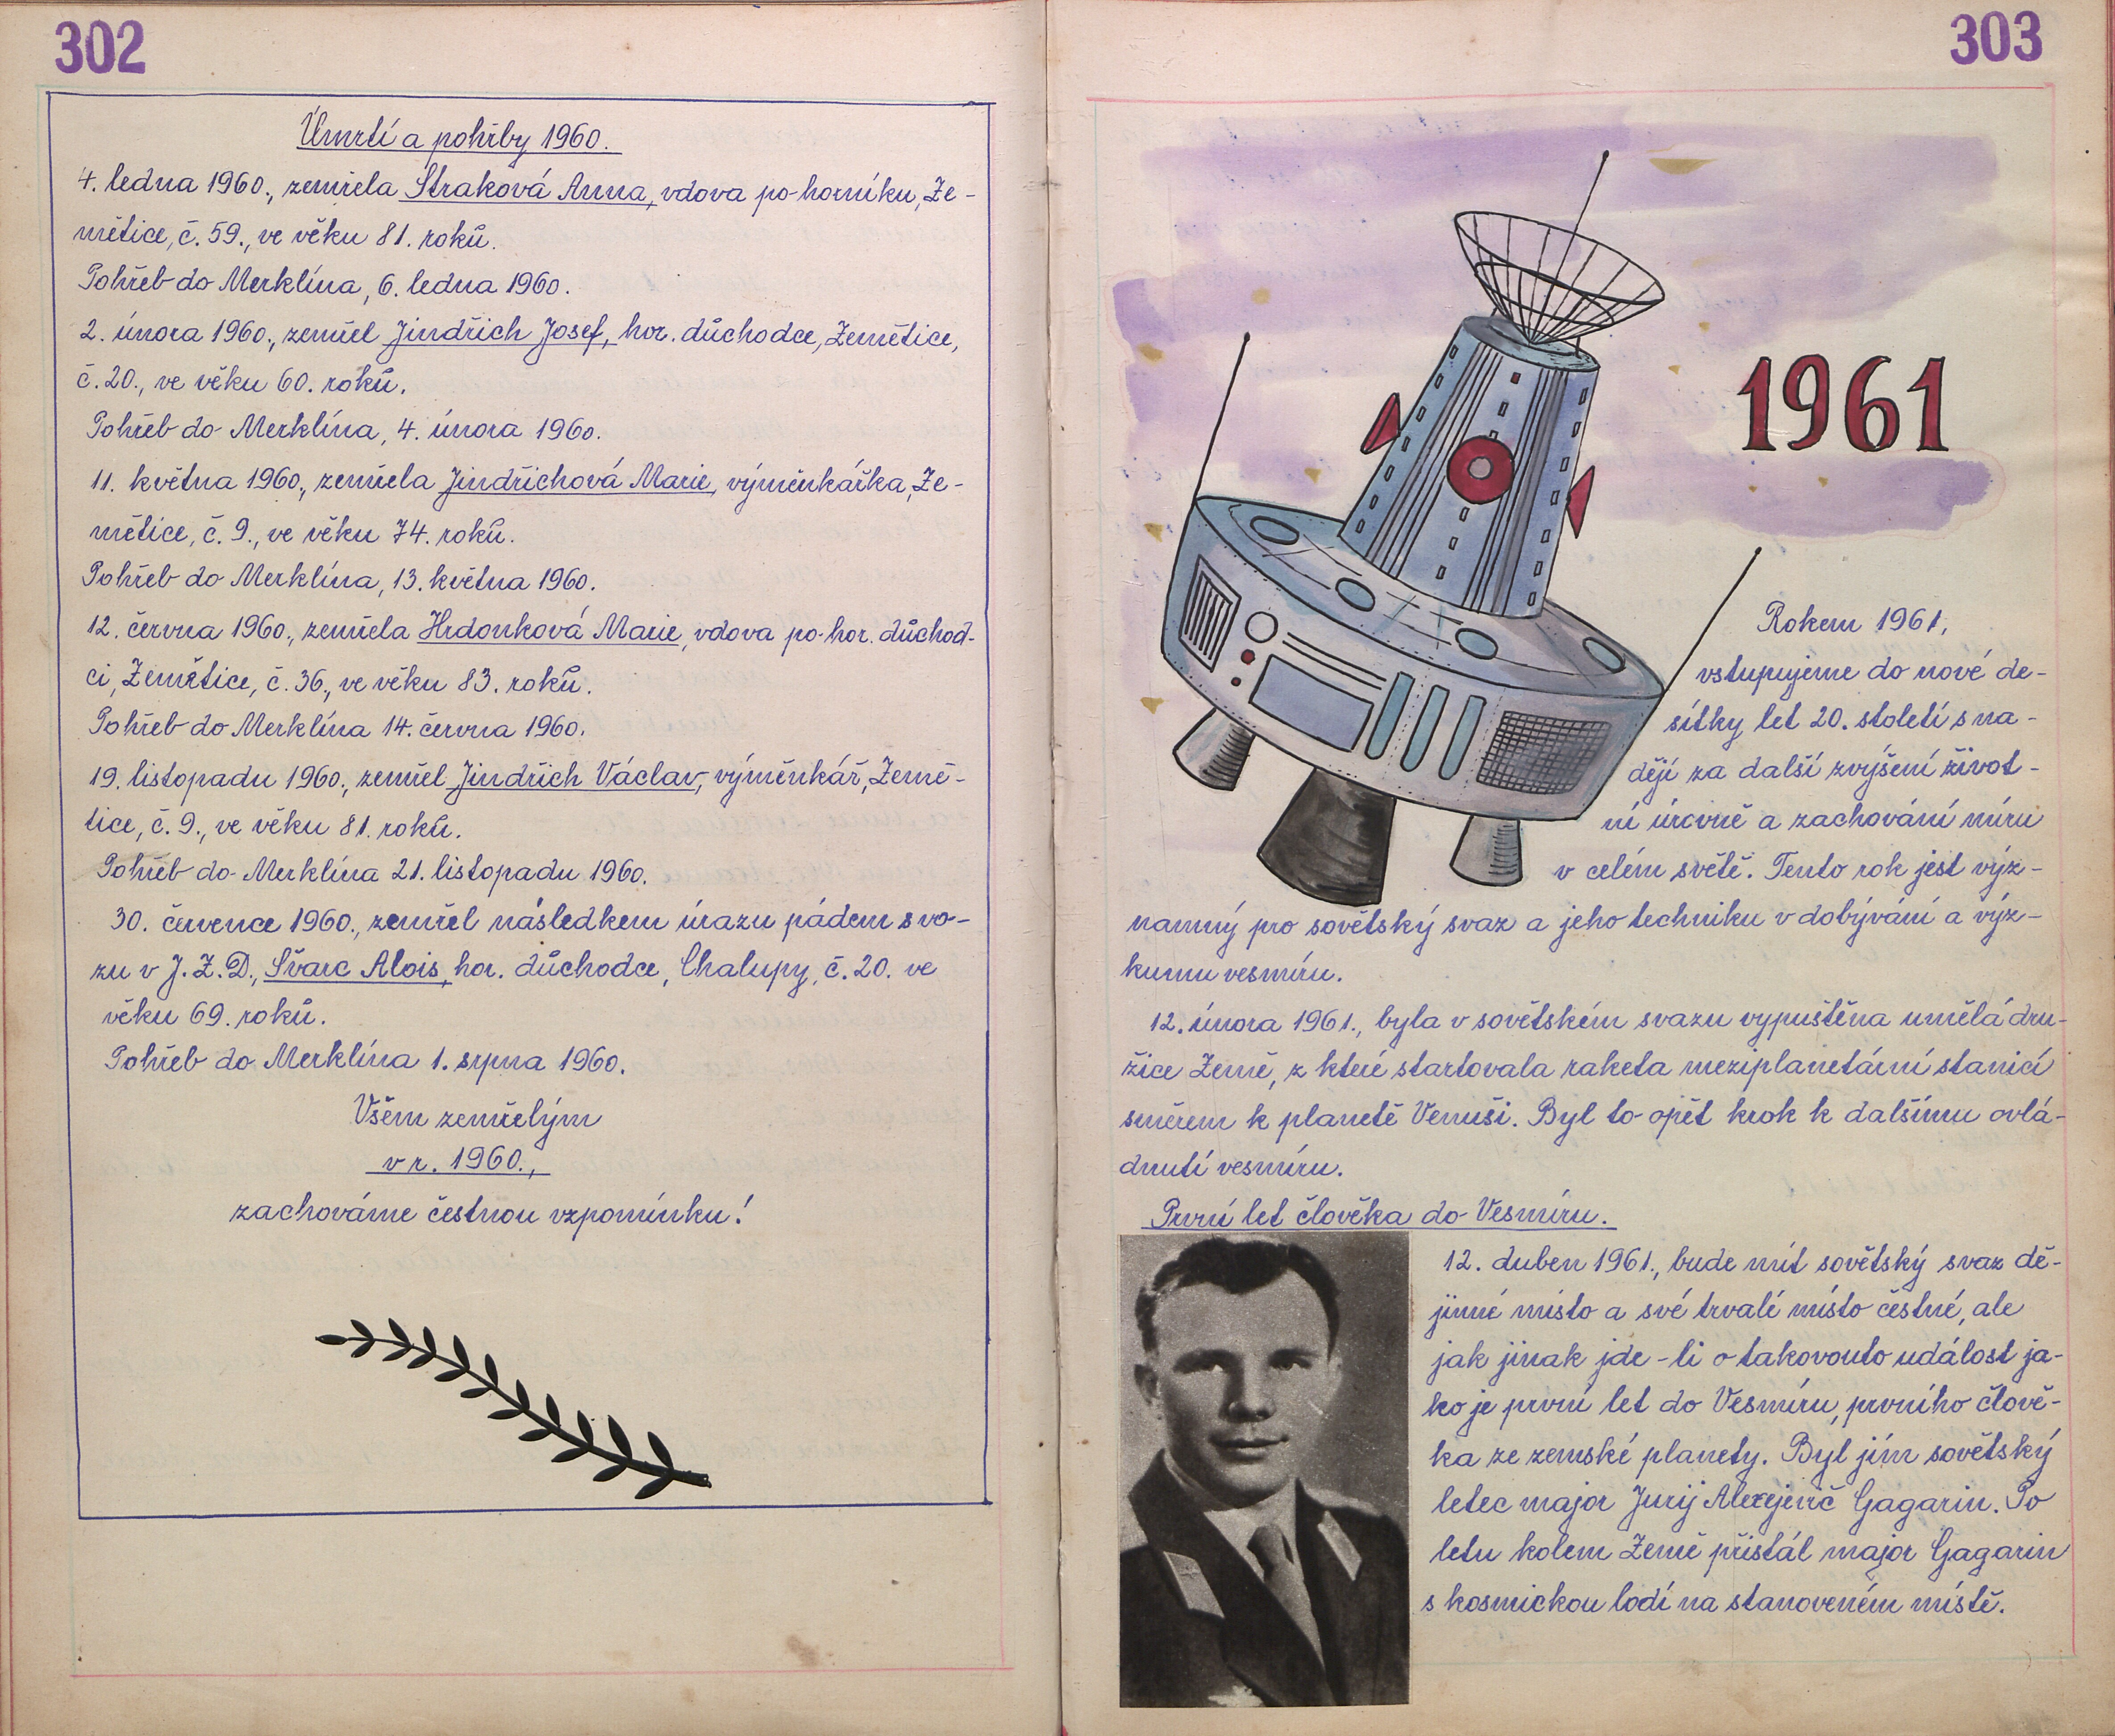 302
Úmrtí a pohřby 1960.
4. ledna 1960., zemřela Straková Anna, vdova po horníku, Že-
mětice, č. 59., ve věku 81. roků.
Pohřeb do Merklína, 6. ledna 1960.
2. února 1960., zemřel Jindřich Josef, hor. důchodce, Žemětice,
č. 20., ve věku 60. roků.
Pohřeb do Merklína, 4. února 1960.
11. května 1960., zemřela Jindřichová Marie, výměnkářka, Že-
mětice, č. 9., ve věku 74. roků.
Pohřeb do Merklína, 13. května 1960.
12. června 1960., zemřela Hrdonková Marie, vdova po hor. důchod-
ci, Žemětice, č. 36., ve věku 83. roků.
Pohřeb do Merklína 14. června 1960.
19. listopadu 1960., zemřel Jindřich Václav, výměnkář, Žemě-
tice, č. 9., ve věku 81. roků.
Pohřeb do Merklína 21. listopadu 1960.
30. července 1960., zemřel následkem úrazu pádem s vo-
zu v J.Z.D., Švarc Alois, hor. důchodce, Chalupy, č. 20. ve
věku 69. roků.
Pohřeb do Merklína 1. srpna 1960.
Všem zemřelým
v r. 1960.,
zachováme čestnou vzpomínku!
303
1961
Rokem 1961,
vstupujeme do nové de-
sítky let 20. století s na-
dějí za další zvýšení život-
ní úrovně a zachování míru
v celém světě. Tento rok jest výz-
namný pro sovětský svaz a jeho techniku v dobývání a výz-
kumu vesmíru.
12. února 1961., byla v sovětském svazu vypuštěna umělá dru-
žice Země, z které startovala raketa meziplanetární stanicí
směrem k planetě Venuši. Byl to opět krok k dalšímu ovlá-
dnutí vesmíru.
První let člověka do Vesmíru.
12. duben 1961., bude mít sovětský svaz dě-
jinné místo a své trvalé místo čestné, ale
jak jinak jde-li o takovouto událost ja-
ko je první let do Vesmíru, prvního člově-
ka ze zemské planety. Byl jím sovětský
letec major Jurij Alexejevič Gagarin. Po
letu kolem Země přistál major Gagarin
s kosmickou lodí na stanoveném místě.